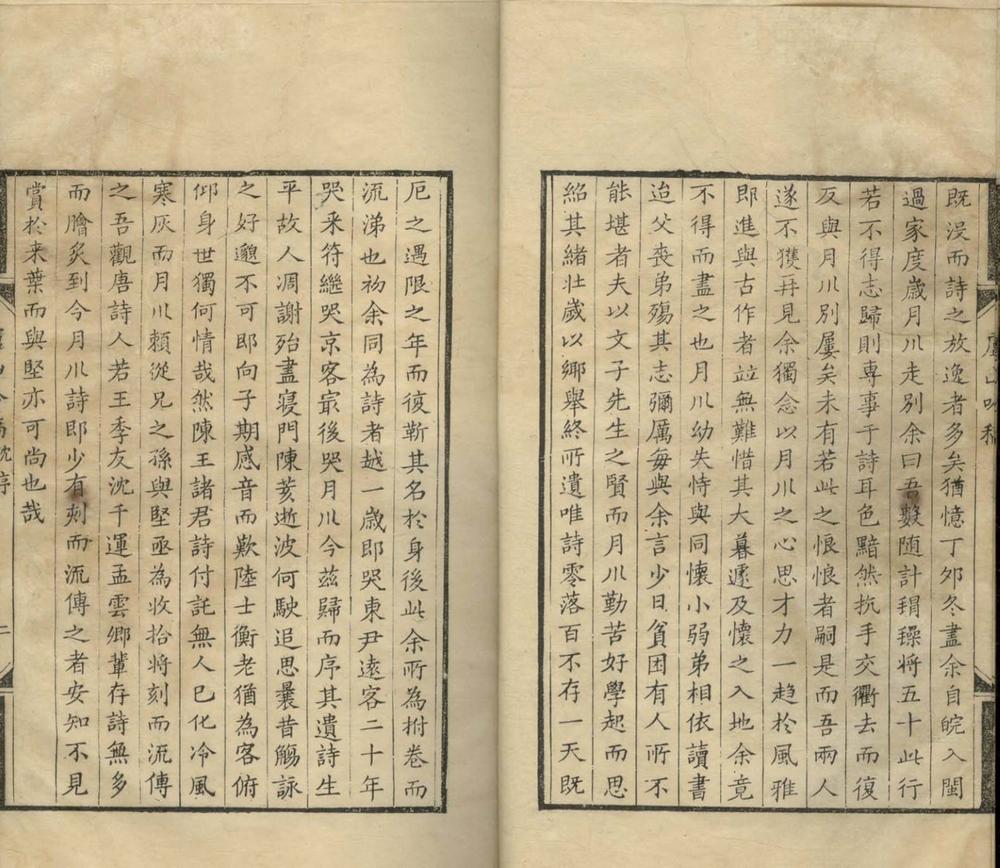 既沒而詩之放逸者多矣猶憶丁夘冬盡余自皖入閩
過家度歲月川走別余曰吾數随計褐璪將五十此行
若不得志歸則專事于詩耳色黯然抗手交衢去而復
反與月川別屢矣未有若此之悢悢者嗣是而吾兩人
遂不獲再見余獨念以月川之心思才力一趋於風雅
即進與古作者竝無難惜其大暮遽及懷之入地余竟
不得而盡之也月川幼失恃與同懷小弱弟相依讀書
迨父喪弟殤其志彌厲每與余言少日貧困有人所不
能堪者夫以文子先生之賢而月川勤苦好學起而思
紹其緒壮歲以鄉舉終所遺唯詩零落百不存一天既
厄之遇限之年而復靳其名於身後此余所為拊卷而
流涕也初余同為詩者越一歲即哭東尹遠客二十年
哭采符繼哭京客最後哭月川今兹歸而序其遺詩生
平故人凋謝殆盡寝門陳荄逝波何駛追思曩昔觴詠
之好邈不可即向子期感音而歎陸士衡老猶為客俯
仰身世獨何情哉然陳王諸君詩付託無人已化冷風
寒灰而月川頼從兄之孫與堅亟為收拾将刻而流傳
之吾觀唐詩人若王季友沈千運孟雲卿輩存詩無多
而膾炙到今月川詩即少有刻而流傳之者安知不見
賞於来葉而與堅亦可尚也哉